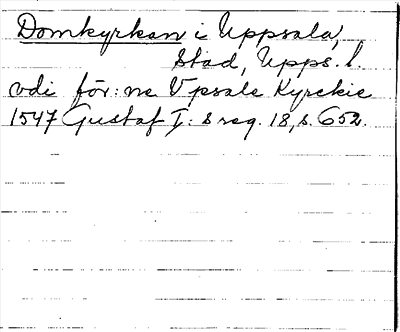 Domkyrkan i Uppsala,
stad, Upps. l.
vdi för: ne Vpsale Kyrckie
1547 Gustaf I: s reg. 18, s. 652.